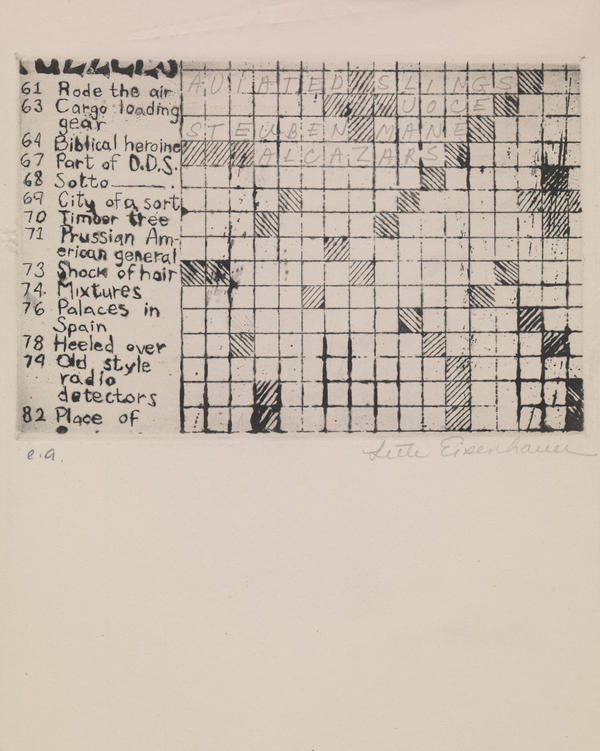 PUZZLES
61 Rode the air
63 Cargo loading
gear
64 Biblical heroine
67 Part of D.D.S.
68 Sotto ____.
69 City of a sort
70 Timber tree
71 Prussian Am-
erican general
73 Shock of hair
74. Mixtures
76 Palaces in
Spain
78 Heeled over
79 Old style
radio
detectors
82 Place of
AVIATED SLINGS
VOCE
STEUBEN MANE
ALCAZARS
e.a.
Lette Eisenhauer